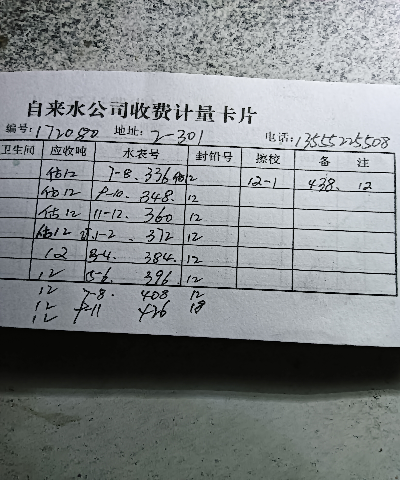 自来水公司收费计量卡片
编号:1720580 地址: 2-301 电话:13555225508
卫生间 应收吨 水表号 封铅号 擦校 备 注
估12 7-8. 336 估12 12-1 438. 12
估12 9-10. 348. 12
估12 11-12. 360 12
估12 1-2 372 12
12 3-4. 384. 12
12 5-6. 396 12
12 7-8. 408 12
12 9-11 426 18
12